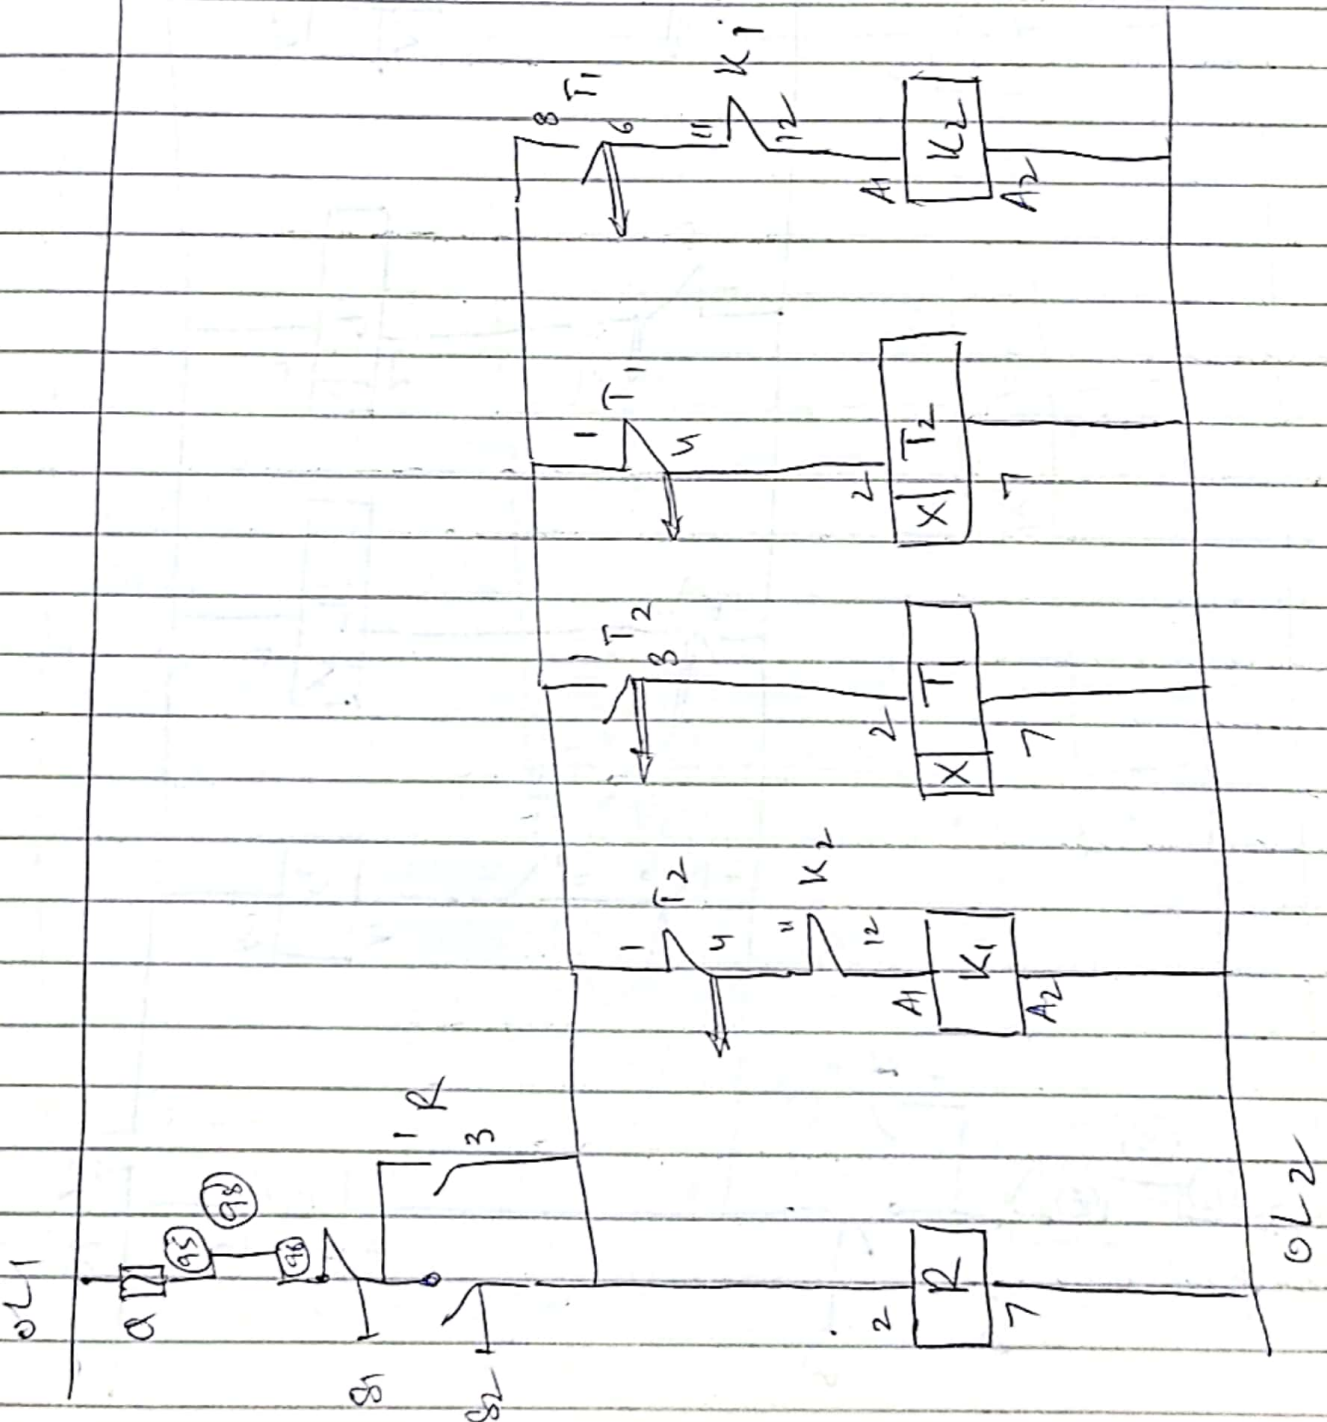 OL1
Q
95
98
96
S1
S2
1
R
3
2
R
7
1
T2
4
11
K2
12
A1
K1
A2
1
T2
3
2
X T1
7
1
T1
4
2
X T2
7
8
T1
6
11
K1
12
A1
K2
A2
OL2